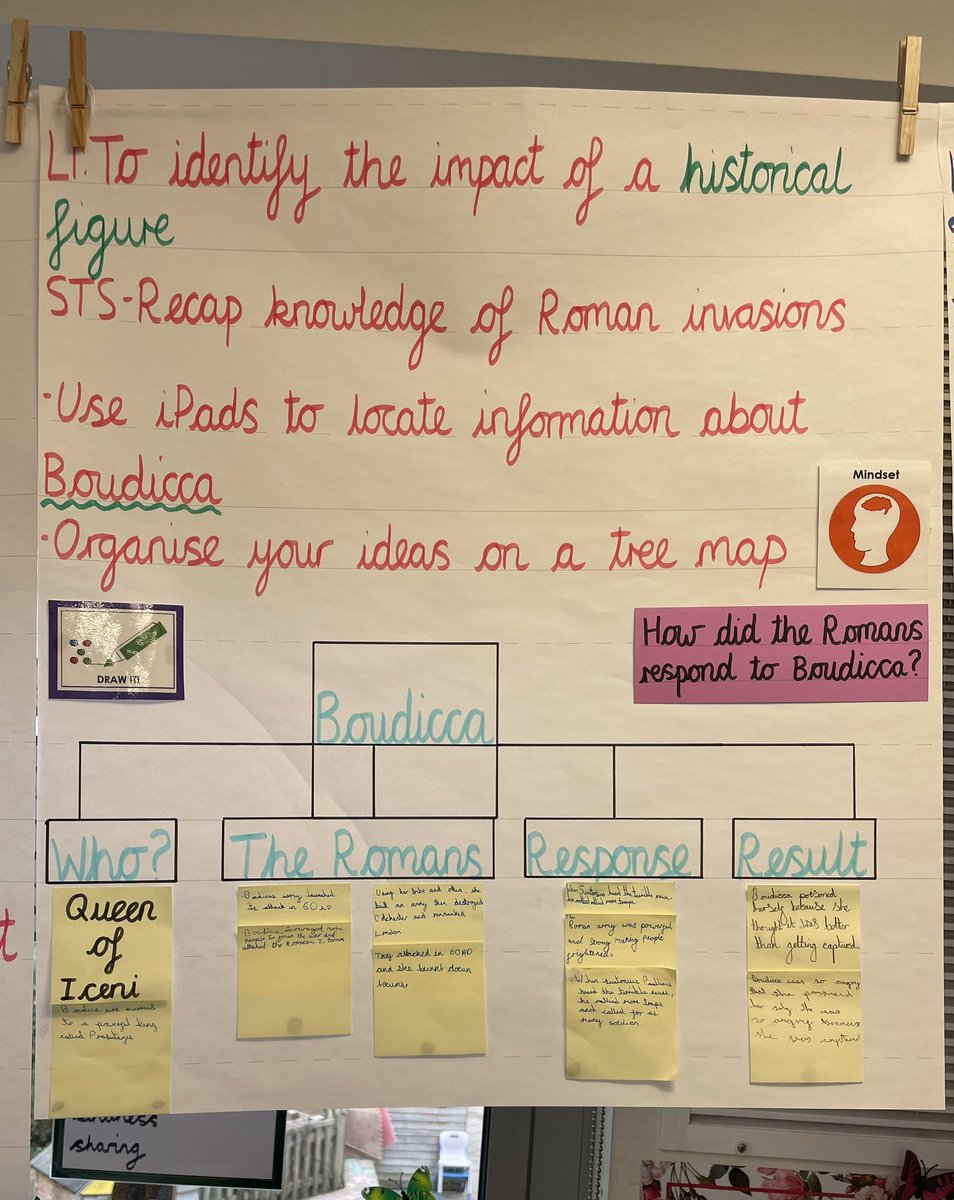 LI: To identify the impact of a historical
figure
STS-Recap knowledge of Roman invasions
·Use iPads to locate information about
Boudicca
Mindset
·Organise your ideas on a tree map
DRAW IT!
How did the Romans
respond to Boudicca?
Boudicca
Who?
The Romans
Response
Result
Queen
of
Iceni
was married
to a powerful king
called
army launched
its attack in 60 AD
encouraged more
people to join the war and
attacked the Romans, 2 towns
Using her tribe and other, she
built an army then destroyed
Colchester and ransacked
London.
They attacked in 60 AD
and she burnt down
towns.
When heard the terrible news,
he called more troops.
The
Roman army was powerful
and strong making people
frightened.
When Suetonius Paullinus
heard the terrible news,
he called more troops
and called for as
many soldiers.
Boudicca poisoned
herself because she
thought it was better
than getting captured.
Boudicca was so angry
that she
she was
so angry because
she was captured
kindness
sharing